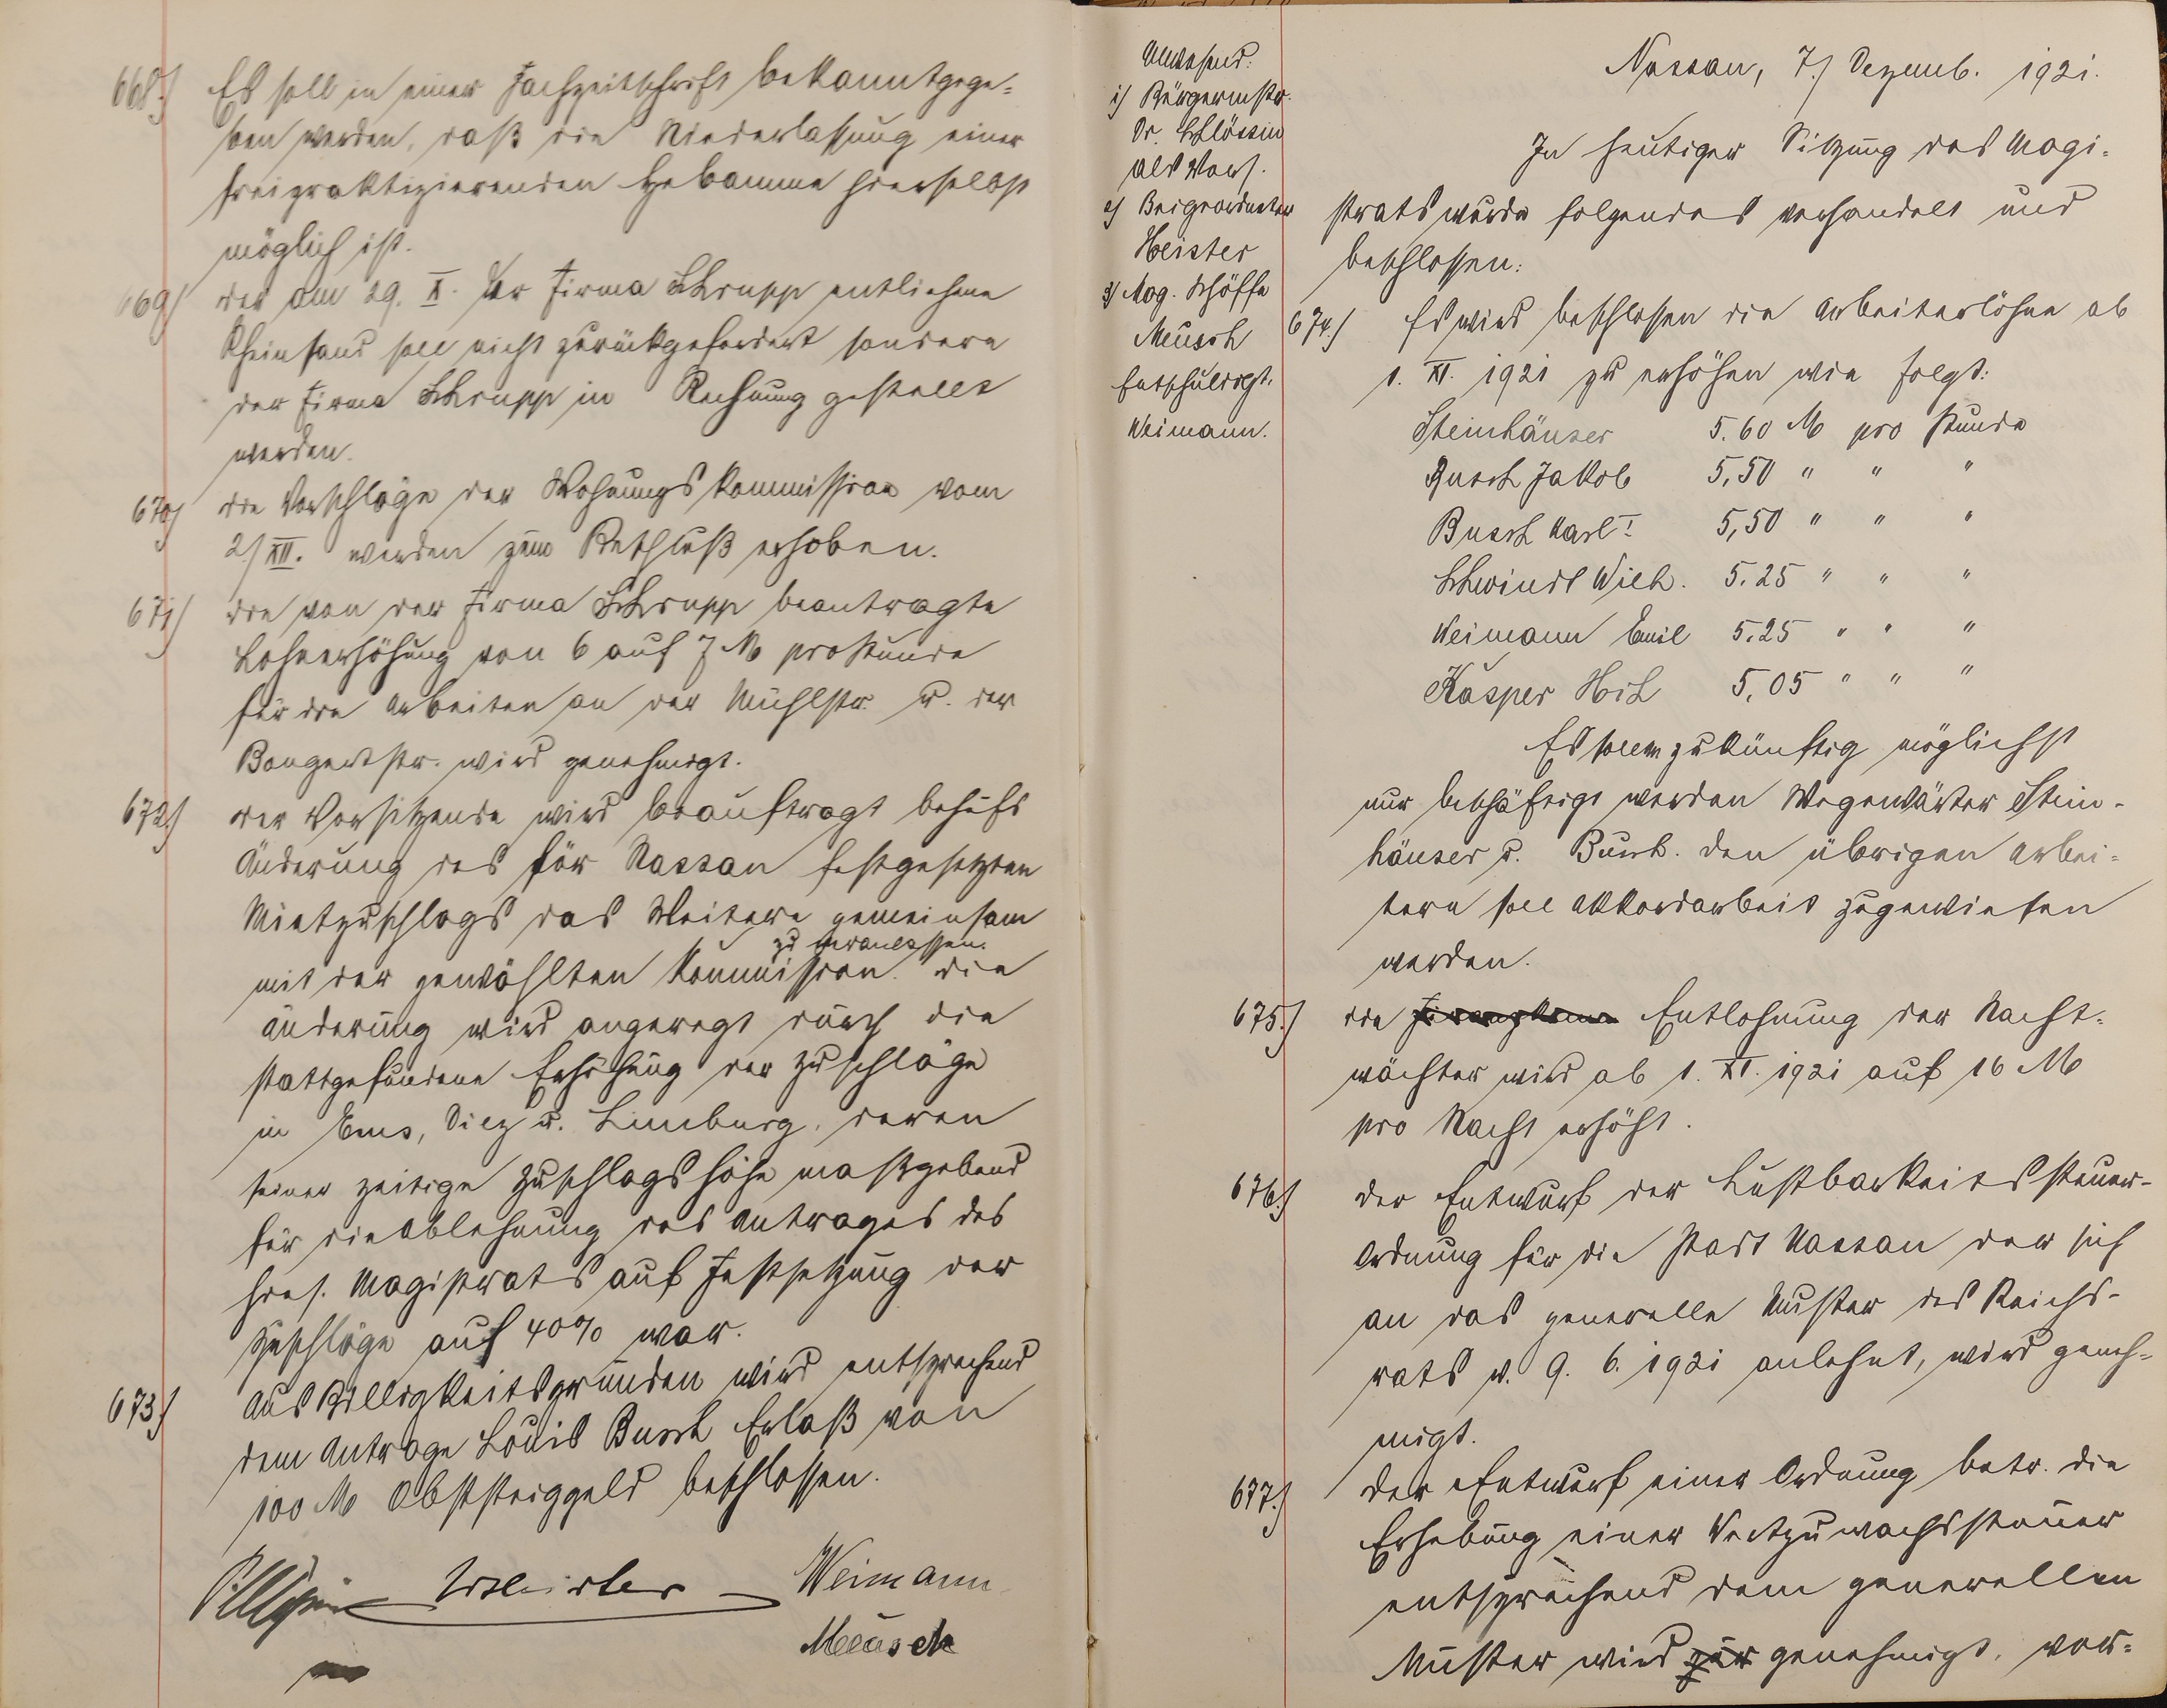 668.) Es soll in einer Fachzeitschrift bekanntgege=
ben werden, daß die Niederlassung einer
freipraktizierenden Hebamme hierselbst
möglich ist.
669) der am 29. X. der Firma Schrupp entliehene
Rheinsand soll nicht zurückgefordert sondern
der Firma Schrupp in Rechnung gestellt
werden.
670) die Vorschläge der Wohnungskommission vom
2/XII. werden zum Beschluß erhoben.
671) die von der Firma Schrupp beantragte
Lohnerhöhung von 6 auf 7 M pro Stunde
für die Arbeiten an der Mühlstr. u. der
Bongertstr. wird genehmigt.
672.) der Vorsitzende wird beauftragt behufs
Änderung des für Nassau festgesetzten
Mietzuschlags das Weitere gemeinsam
zu veranlassen.
mit der gewählten Kommission. die
Änderung wird angeregt durch die
stattgefundene Erhöhung der Zuschläge
in Ems, Diez u. Limburg, deren
seiner zeitige Zuschlagshöhe maßgebend
für die Ablehnung des Antrages des
hies. Magistrats auf Festsetzung der
Zuschläge auf 40% war.
673.) Aus Billigkeitsgründen wird entsprechend
dem Antrage Louis Busch Erlaß von
100 M Obststeiggeld beschlossen.
Heister Weimann
Meusch
Anwesend:
1) Bürgermstr.
Dr. Schlössin
als Vors.
2) Beigeordneter
Heister
3) Mag. Schöffe
Meusch
Entschuldigt.
Weimann.
Nassau, 7./ Dezemb. 1921.
In heutiger Sitzung des Magi=
strats wurde folgendes verhandelt und
beschlossen:
674.) Es wird beschlossen die Arbeiterlöhne ab
1. XI. 1921 zu erhöhen wie folgt:
Steinhäuser 5.60 M pro Stunde
Busch Jakob 5,50 " " "
Busch Karl I 5,50 " " "
Schwindt Wilh. 5.25 " " "
Weimann Emil 5.25 " " "
Kasper Hch 5,05 " " "
Es sollen zukünftig möglichst
nur beschäftigt werden Wegewärter Stein-
häuser u. Busch. den übrigen Arbei=
tern soll Akkordarbeit zugewiesen
werden.
675.) die Entlohnung der Nacht=
wächter wird ab 1. XI. 1921 auf 16 M
pro Nacht erhöht.
676.) der Entwurf der Lustbarkeitssteuer-
Ordnung für die Stadt Nassau der sich
an das generelle Muster des Reichs-
rats v. 9. 6. 1921 anlehnt, wird geneh=
migt.
677.) der Entwurf einer Ordnung betr. die
Erhebung einer Wertzuwachssteuer
entsprechend dem generellen
Muster wird zur genehmigt, vor=